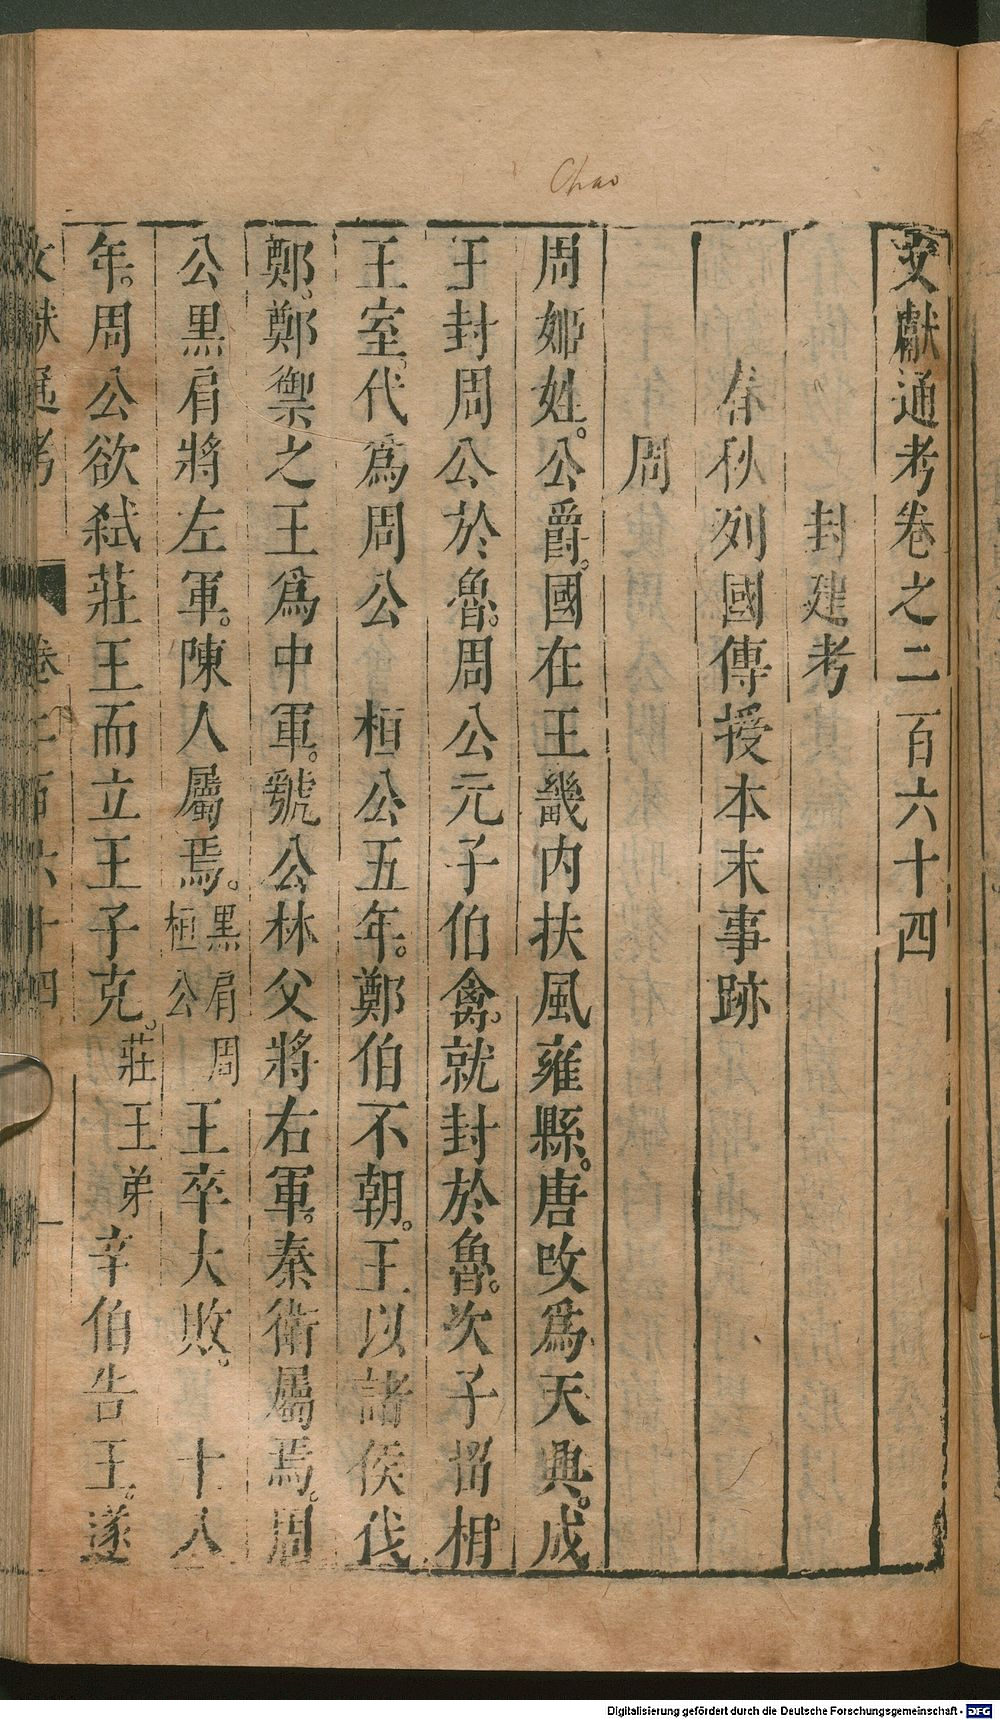 Chao
文獻通考卷之二百六十四
封建考
春秋列國傳授本末事跡
周
周姬姓。公爵。國在王畿内扶風雍縣。唐改爲天興。成
王封周公於魯。周公元子伯禽。就封於魯。次子留相
王室。代爲周公 桓公五年。鄭伯不朝。王以諸侯伐
鄭。鄭禦之王爲中軍。虢公林父將右軍。秦衛屬焉。周
公黑肩將左軍。陳人屬焉。黑肩周桓公 王卒大敗。 十八
年。周公欲弑莊王而立王子克。莊王弟 辛伯告王。遂
文獻通考 卷二百六十四 一
Digitalisierung gefördert durch die Deutsche Forschungsgemeinschaft - DFG